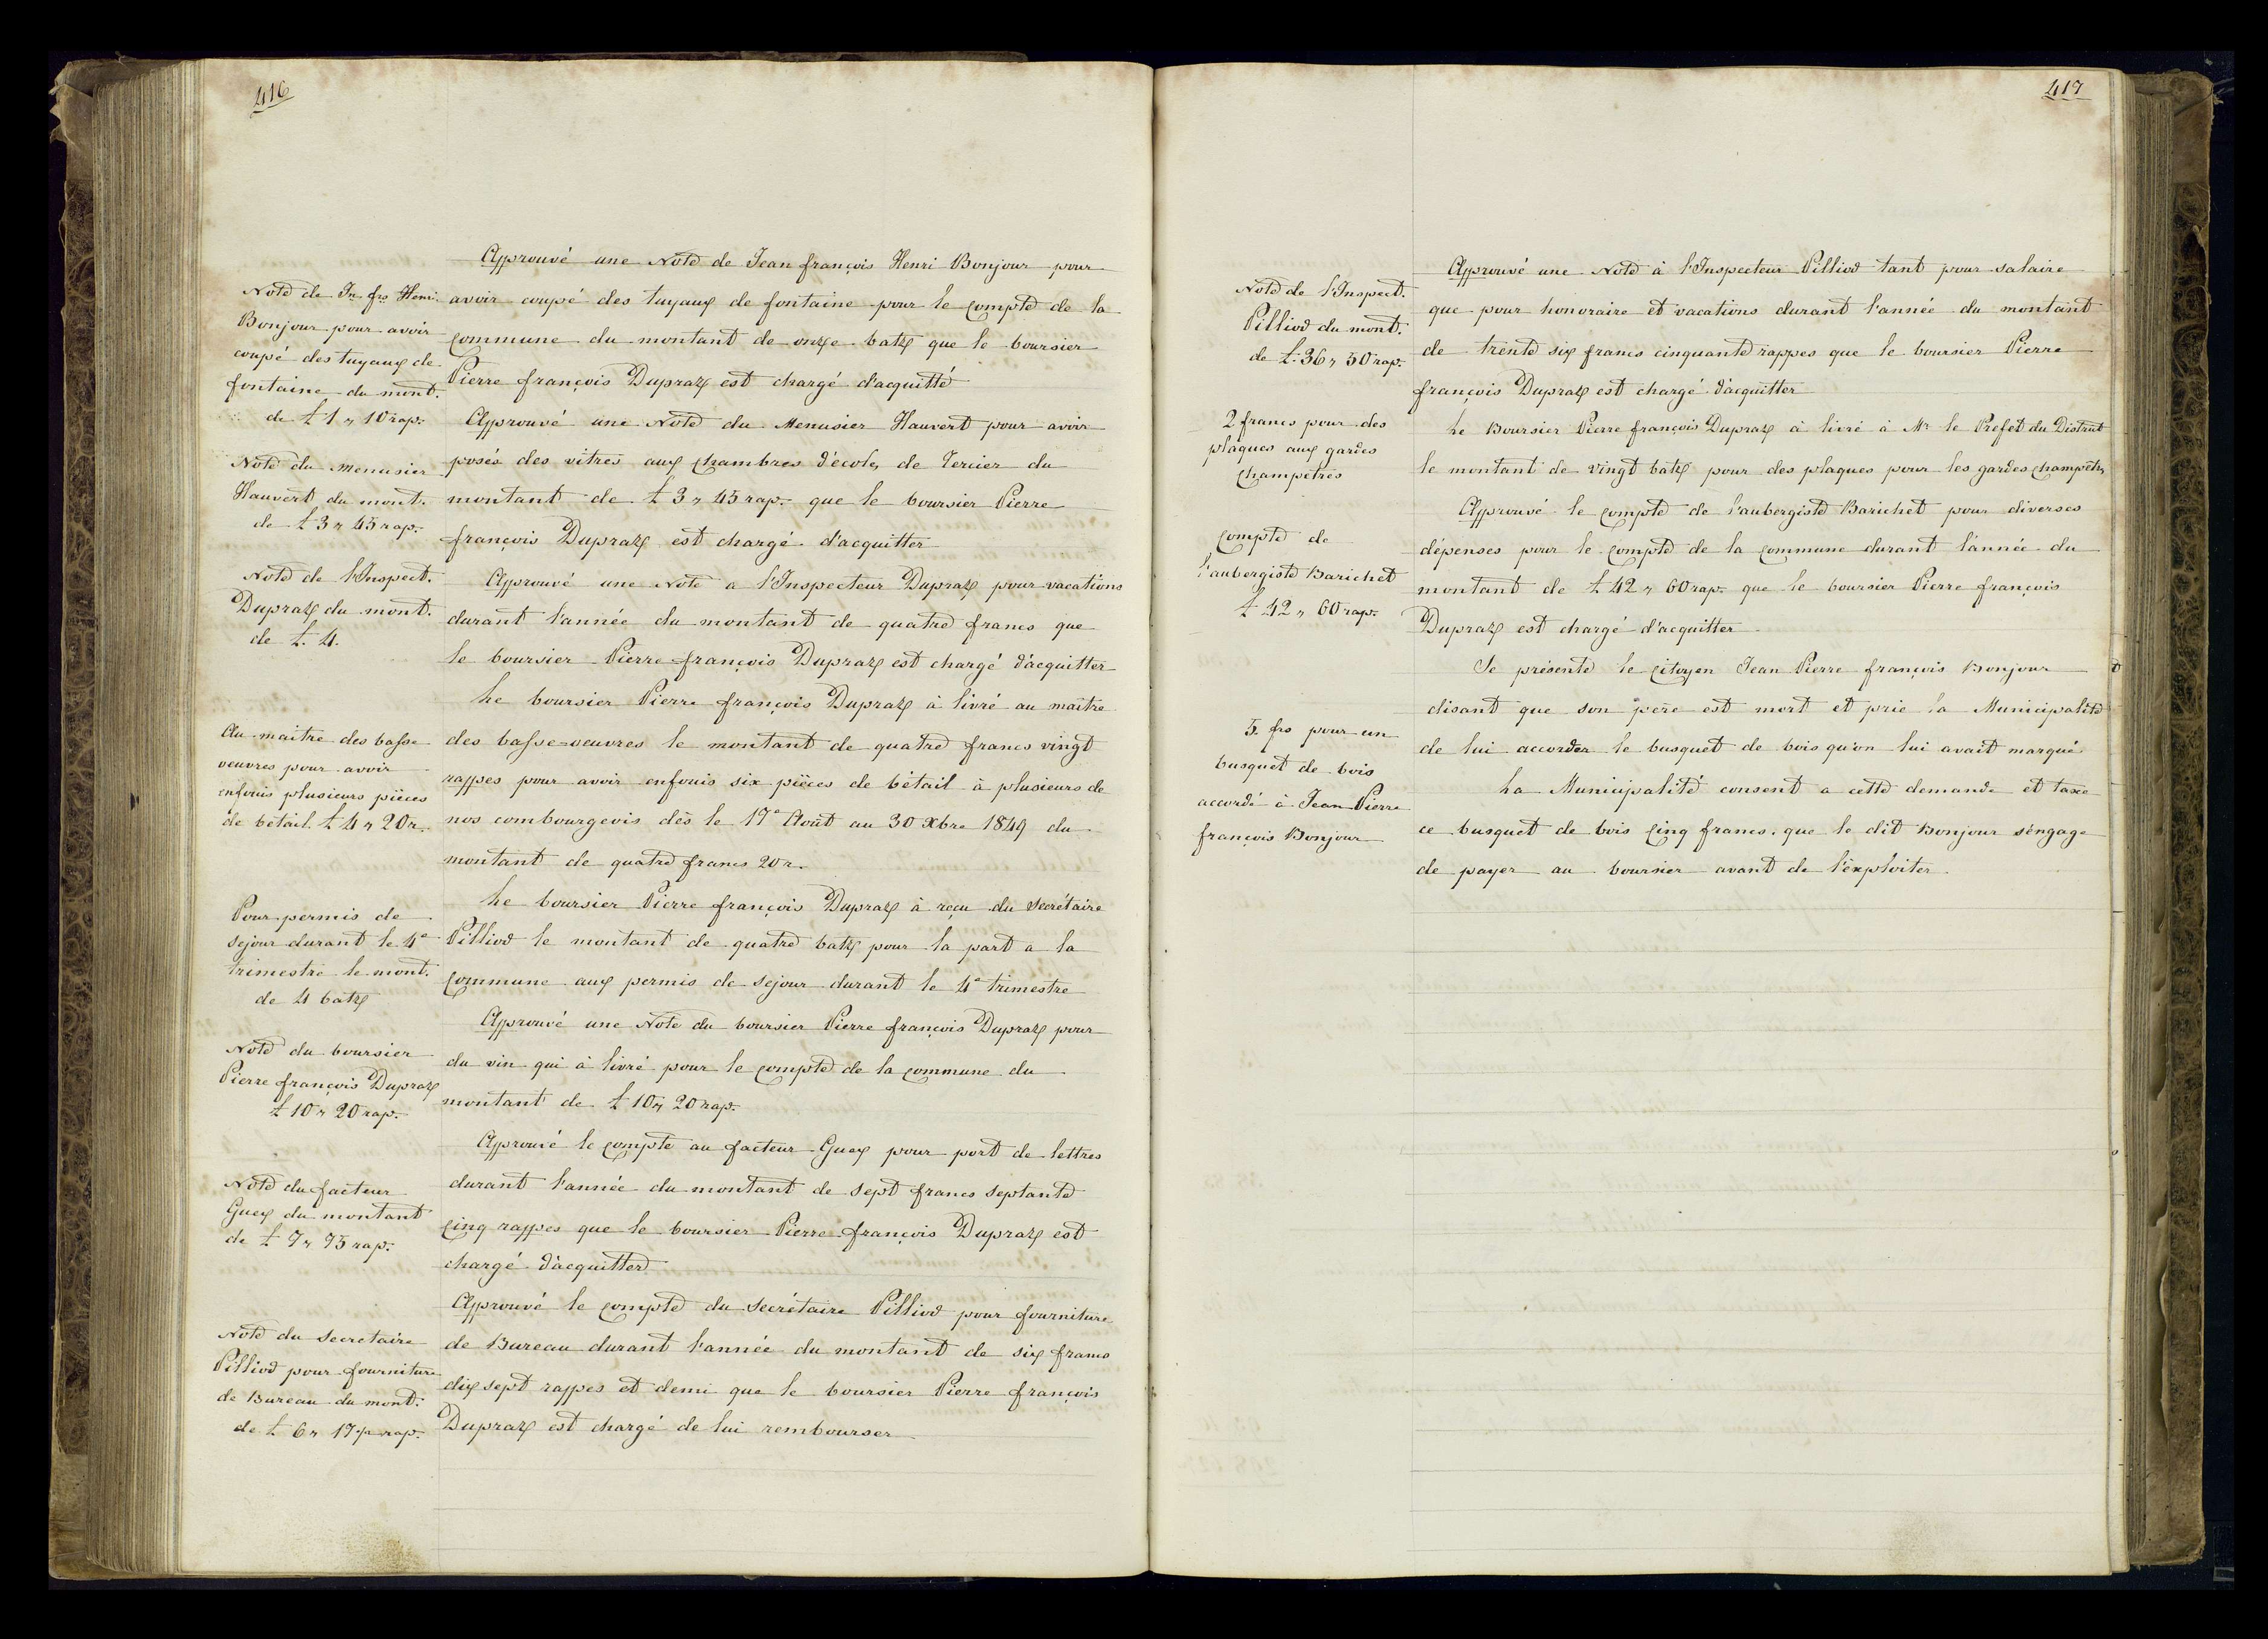 416
Note de Jn. frs Henri
Bonjour pour avoir
coupé des tuyaux de
fontaine du mont.
de £ 1 " 10 rap.
Approuvé une Note de Jean françois Henri Bonjour pour
avoir coupé des tuyaux de fontaine pour le compte de la
commune du montant de onze batz que le boursier
Pierre françois Dupraz est chargé d'acquitté
Note du menusier
Hauvert du mont.
de £ 3 " 45 rap.
Approuvé une Note du Menusier Hauvert pour avoir
posés des vitres aux chambres d'écoles de Tercier du
montant de £ 3 " 45 rap. que le boursier Pierre
françois Dupraz est chargé d'acquitter
Note de l'Inspect.
Dupraz du mont.
de £. 4.
Approuvé une Note a l'Inspecteur Dupraz pour vacations
durant l'année du montant de quatre francs que
le boursier Pierre françois Dupraz est chargé d'acquitter
Au maitre des basse
oeuvres pour avoir
enfouis plusieurs pièces
de bétail. £ 4 " 20 r.
Le boursier Pierre françois Dupraz à livré au maître
des basse-oeuvres le montant de quatre francs vingt
rappes pour avoir enfouis six pièces de bétail à plusieurs de
nos combourgeois dès le 17e Août au 30 Xbre 1849 du
montant de quatre francs 20 r.
Pour permis de
sejour durant le 4e
trimestre le mont.
de 4 batz
Le boursier Pierre françois Dupraz à reçu du secrétaire
Pilliod le montant de quatre batz pour la part a la
commune aux permis de sejour durant le 4e trimestre
Note du boursier
Pierre françois Dupraz
£ 10 " 20 rap.
Approuvé une Note du boursier Pierre françois Dupraz pour
du vin qui à livré pour le compte de la commune du
montant de £ 10 " 20 rap.
Note du facteur
Guex du montant
de £ 7 " 75 rap.
Approuvé le compte au facteur Guex pour port de lettres
durant l'année du montant de sept francs septante
cinq rappes que le boursier Pierre françois Dupraz est
chargé d'acquitter
Note du secretaire
Pilliod pour fourniture
de Bureau du mont.
de £ 6 " 17 1/2 rap.
Approuvé le compte du secrétaire Pilliod pour fourniture
de Bureau durant l'année du montant de six francs
dix sept rappes et demi que le boursier Pierre françois
Dupraz est chargé de lui rembourser
417
Note de l'Inspect.
Pilliod du mont.
de £. 36 " 50 rap.
Approuvé une Note à l'Inspecteur Pilliod tant pour salaire
que pour honoraire et vacations durant l'année du montant
de trente six francs cinquante rappes que le boursier Pierre
françois Dupraz est chargé d'acquitter
2 francs pour des
plaques aux gardes
champêtres
Le Boursier Pierre françois Dupraz à livré à Mr le Prefet du District
le montant de vingt batz pour des plaques pour les gardes champêtres
compte de
l'aubergiste Barichet
£ 42 " 60 rap.
Approuvé le compte de l'aubergiste Barichet pour diverses
dépenses pour le compte de la commune durant l'année du
montant de £ 42 " 60 rap. que le boursier Pierre françois
Dupraz est chargé d'acquitter
5. frs pour un
busquet de bois
accordé à Jean Pierre
françois Bonjour
Se présente le citoyen Jean Pierre françois Bonjour
disant que son père est mort et prie la Municipalité
de lui accorder le busquet de bois qu'on lui avait marqué
La Municipalité consent a cette demande et taxe
ce busquet de bois cinq francs. que le dit Bonjour s'engage
de payer au boursier avant de l'éxploiter.